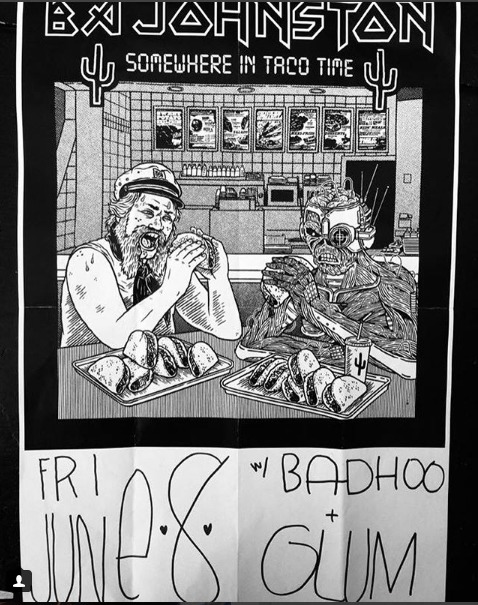 BA JOHNSTON
SOMEWHERE IN TACO TIME
FRI
JUNe 8
w/ BADHOO
+
GLUM